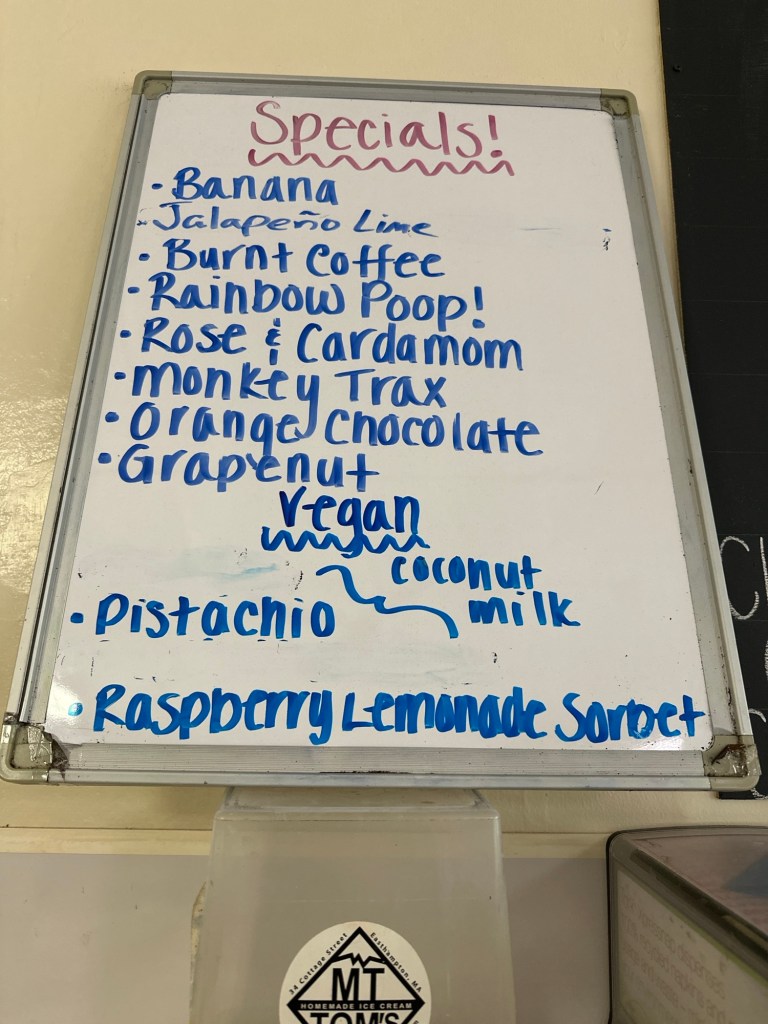 Specials!
• Banana
• Jalapeño Lime
• Burnt Coffee
• Rainbow Poop!
• Rose & Cardamom
• monkey Trax
• Orange Chocolate
• Grapenut
Vegan
coconut
milk
• Pistachio
• Raspberry Lemonade Sorbet
34 Cottage Street Easthampton, MA
MT
HOMEMADE ICE CREAM
TOM'S